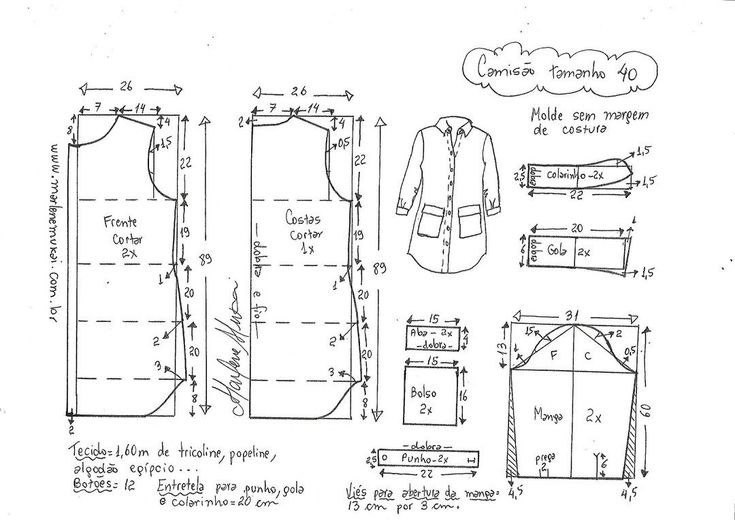 Camisão tamanho 40
Molde sem margem
de costura
26
7 14
4
8
1,5
22
Frente
cortar
2x
19
89
1
20
2
20
3
8
2
www.marlenemukai.com.br
26
7 14
2
4
0,5
22
Costas
cortar
1x
dobra e fio
19
89
1
20
2
20
3
8
Marlene Mukai
1,5
2,5
dobra
colarinho-2x
1,5
22
20
1
6
dobra
Gola 2x
1,5
15
Aba - 2x
-dobra-
4
15
Bolso
2x
16
-dobra-
2,5
Punho-2x
22
31
13
1
1,5
2
0,5
F C
60
Manga 2x
prega
2
6
4,5
4,5
Tecido=1,60m de tricoline, popeline,
algodão egípcio...
Botões= 12 Entretela para punho, gola
e colarinho=20 cm
Viés para abertura da manga=
13 cm por 3 cm.